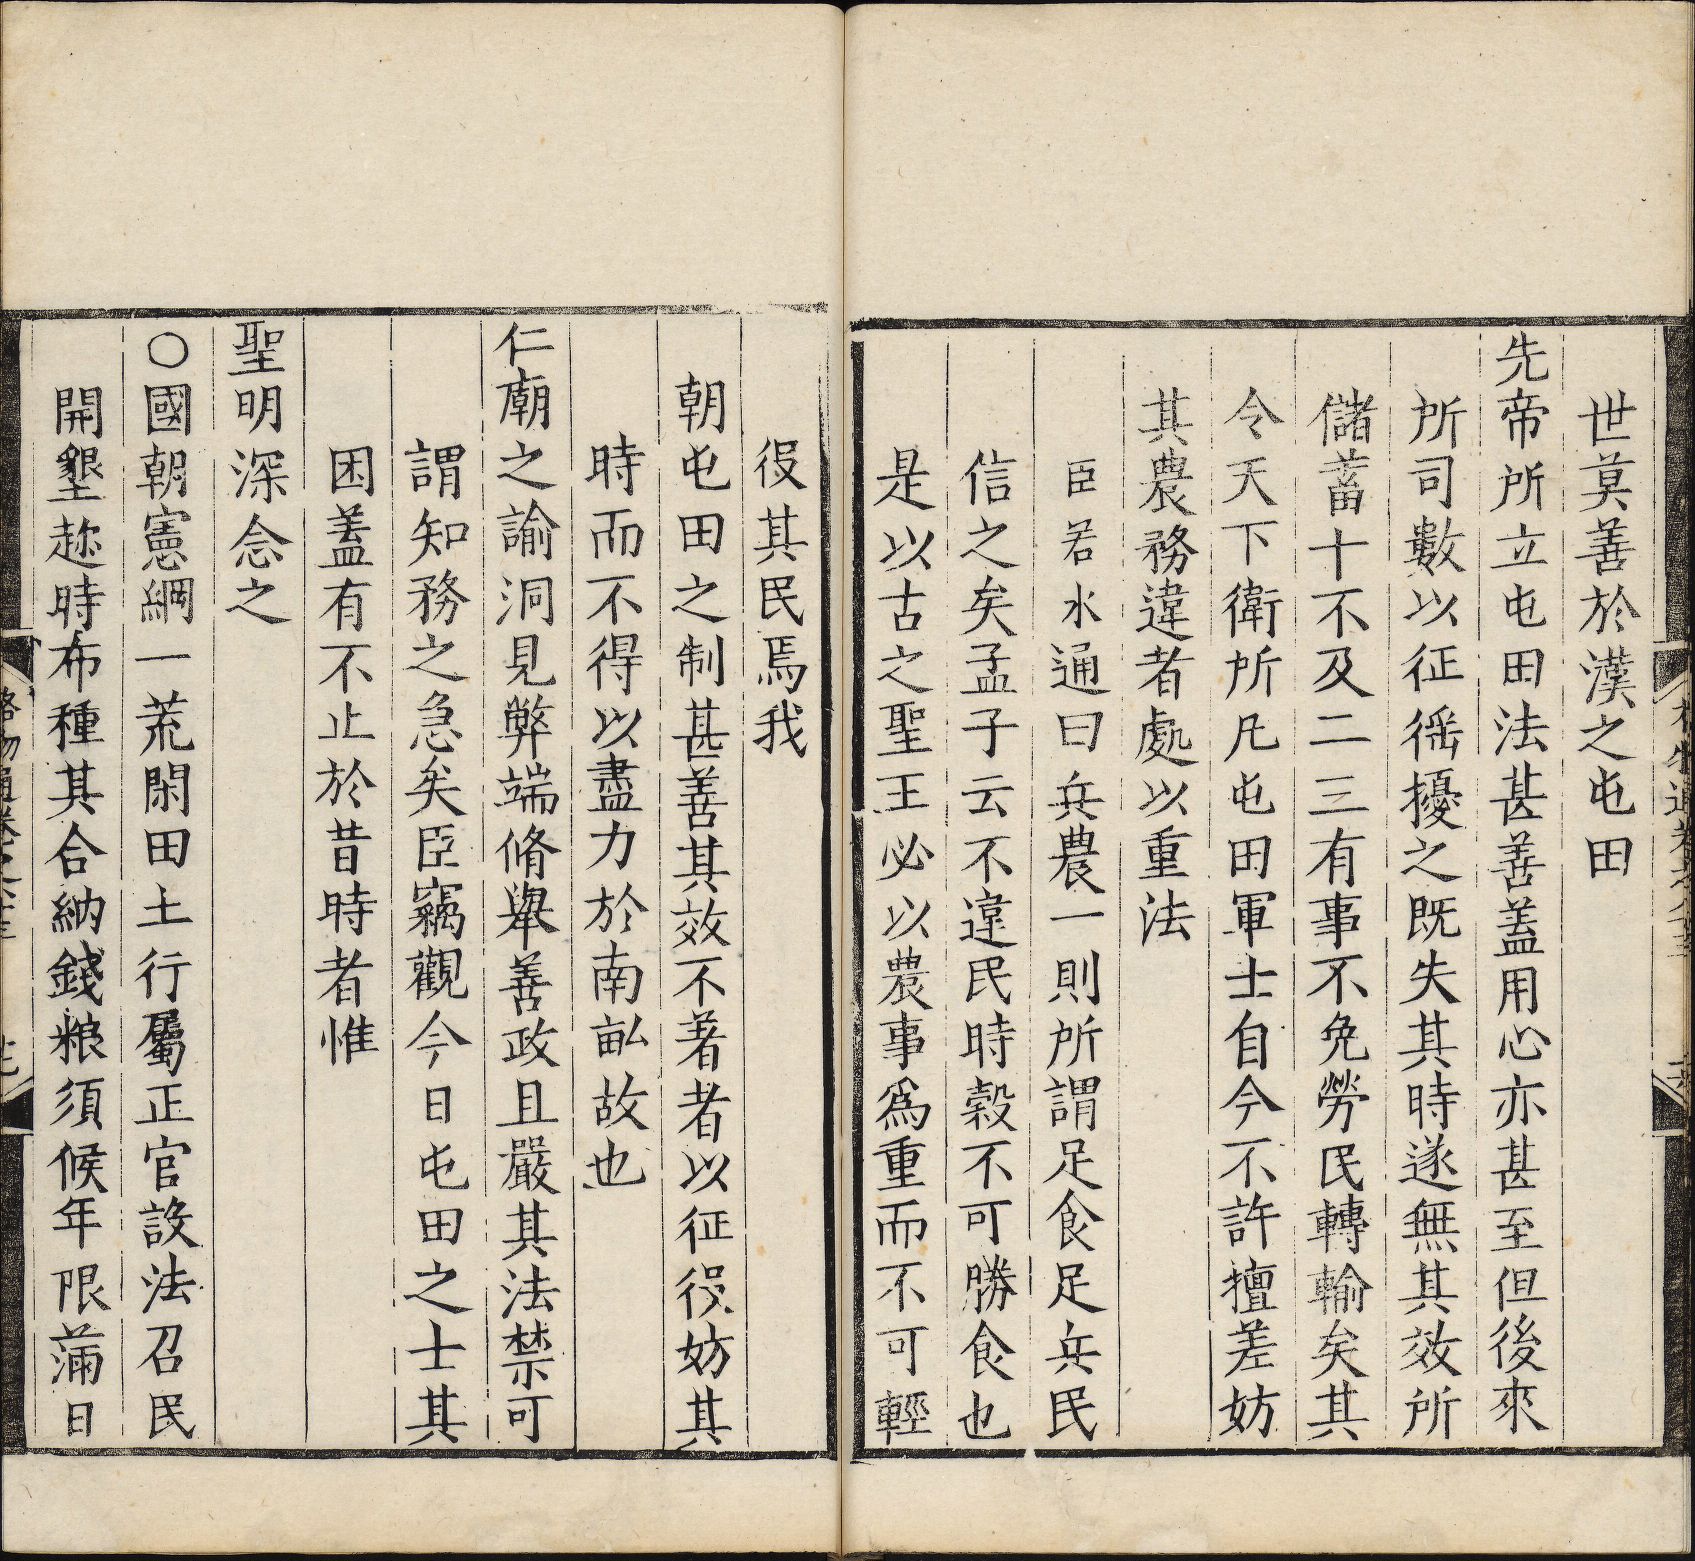 世莫善於漢之屯田
先帝所立屯田法甚善蓋用心亦甚至但後來
所司數以征徭擾之既失其時遂無其效所
儲蓄十不及二三有事不免勞民轉輸矣其
令天下衛所凡屯田軍士自今不許擅差妨
其農務違者處以重法
臣若水通曰兵農一則所謂足食足兵民
信之矣孟子云不違民時穀不可勝食也
是以古之聖王必以農事爲重而不可輕
役其民焉我
朝屯田之制甚善其效不著者以征役妨其
時而不得以盡力於南畝故也
仁廟之諭洞見弊端脩舉善政且嚴其法禁可
謂知務之急矣臣竊觀今日屯田之士其
困蓋有不止於昔時者惟
聖明深念之
○國朝憲綱一荒閑田土行屬正官設法召民
開墾趂時布種其合納錢粮須候年限滿日